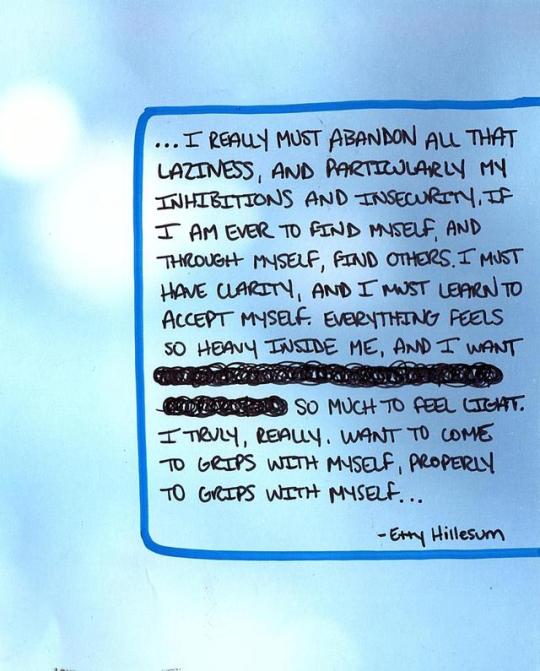 ...I REALLY MUST ABANDON ALL THAT
LAZINESS, AND PARTICULARLY MY
INHIBITIONS AND INSECURITY, IF
I AM EVER TO FIND MYSELF, AND
THROUGH MYSELF, FIND OTHERS. I MUST
HAVE CLARITY, AND I MUST LEARN TO
ACCEPT MYSELF. EVERYTHING FEELS
SO HEAVY INSIDE ME, AND I WANT
SO MUCH TO FEEL LIGHT.
I TRULY, REALLY. WANT TO COME
TO GRIPS WITH MYSELF, PROPERLY
TO GRIPS WITH MYSELF...
-Etty Hillesum